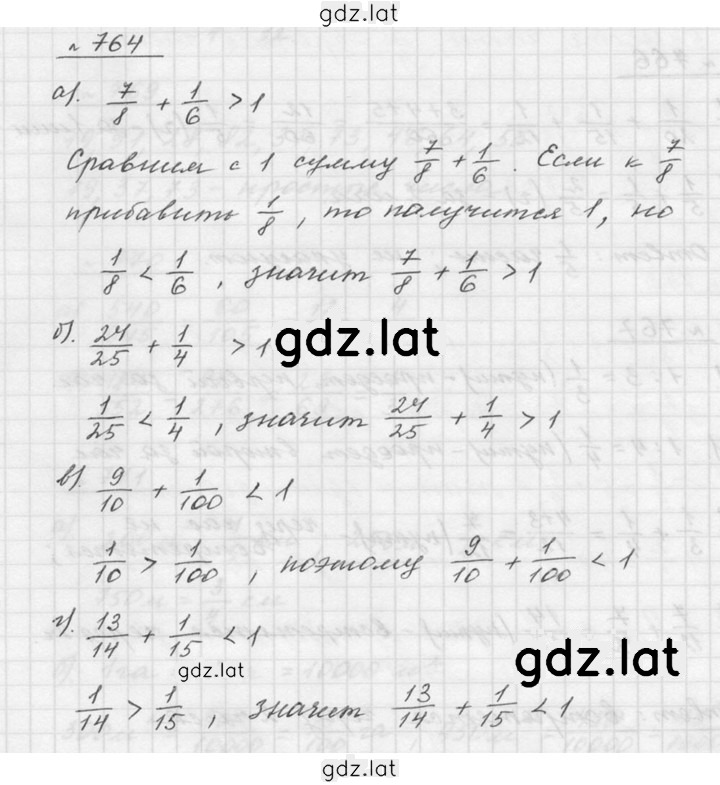 gdz.lat
№ 764
а). 7/8 + 1/6 > 1
Сравним с 1 сумму 7/8 + 1/6 . Если к 7/8
прибавить 1/8 , то получится 1, но
1/8 < 1/6 , значит 7/8 + 1/6 > 1
б). 24/25 + 1/4 > 1
gdz.lat
1/25 < 1/4 , значит 24/25 + 1/4 > 1
в). 9/10 + 1/100 < 1
1/10 > 1/100 , поэтому 9/10 + 1/100 < 1
г). 13/14 + 1/15 < 1
gdz.lat
gdz.lat
1/14 > 1/15 , значит 13/14 + 1/15 < 1
gdz.lat